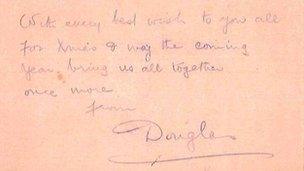 With every best wish to you all
for Xmas & may the coming
Year bring us all together
once more.
from
Douglas